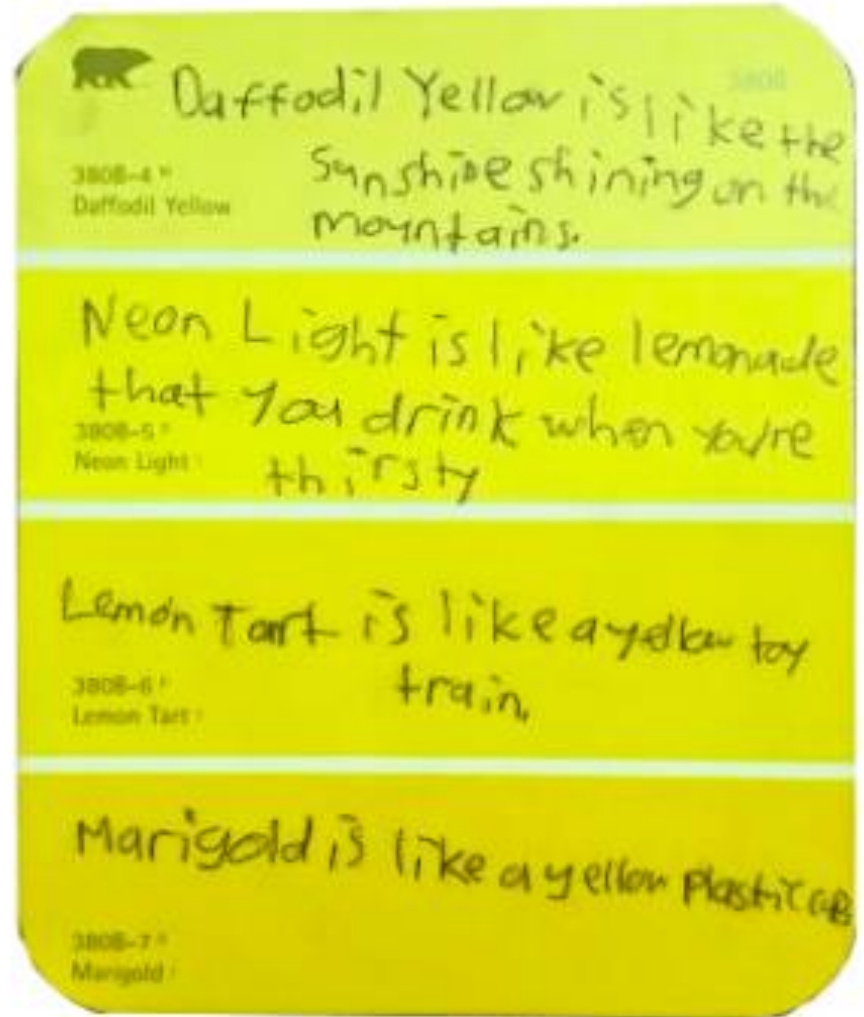 380B
Daffodil Yellow is like the
Sunshine shining on the
mountains.
380B-4
Daffodil Yellow
Neon Light is like lemonade
that you drink when you're
thirsty
380B-5
Neon Light
Lemon Tart is like a yellow toy
train.
380B-6
Lemon Tart
Marigold is like a yellow Plastic
380B-7
Marigold